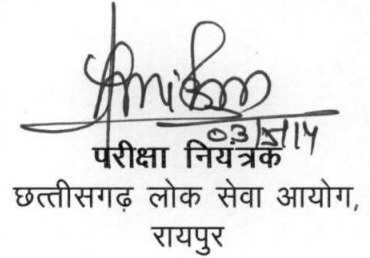 03/5/14
परीक्षा नियंत्रक
छत्तीसगढ़ लोक सेवा आयोग,
रायपुर